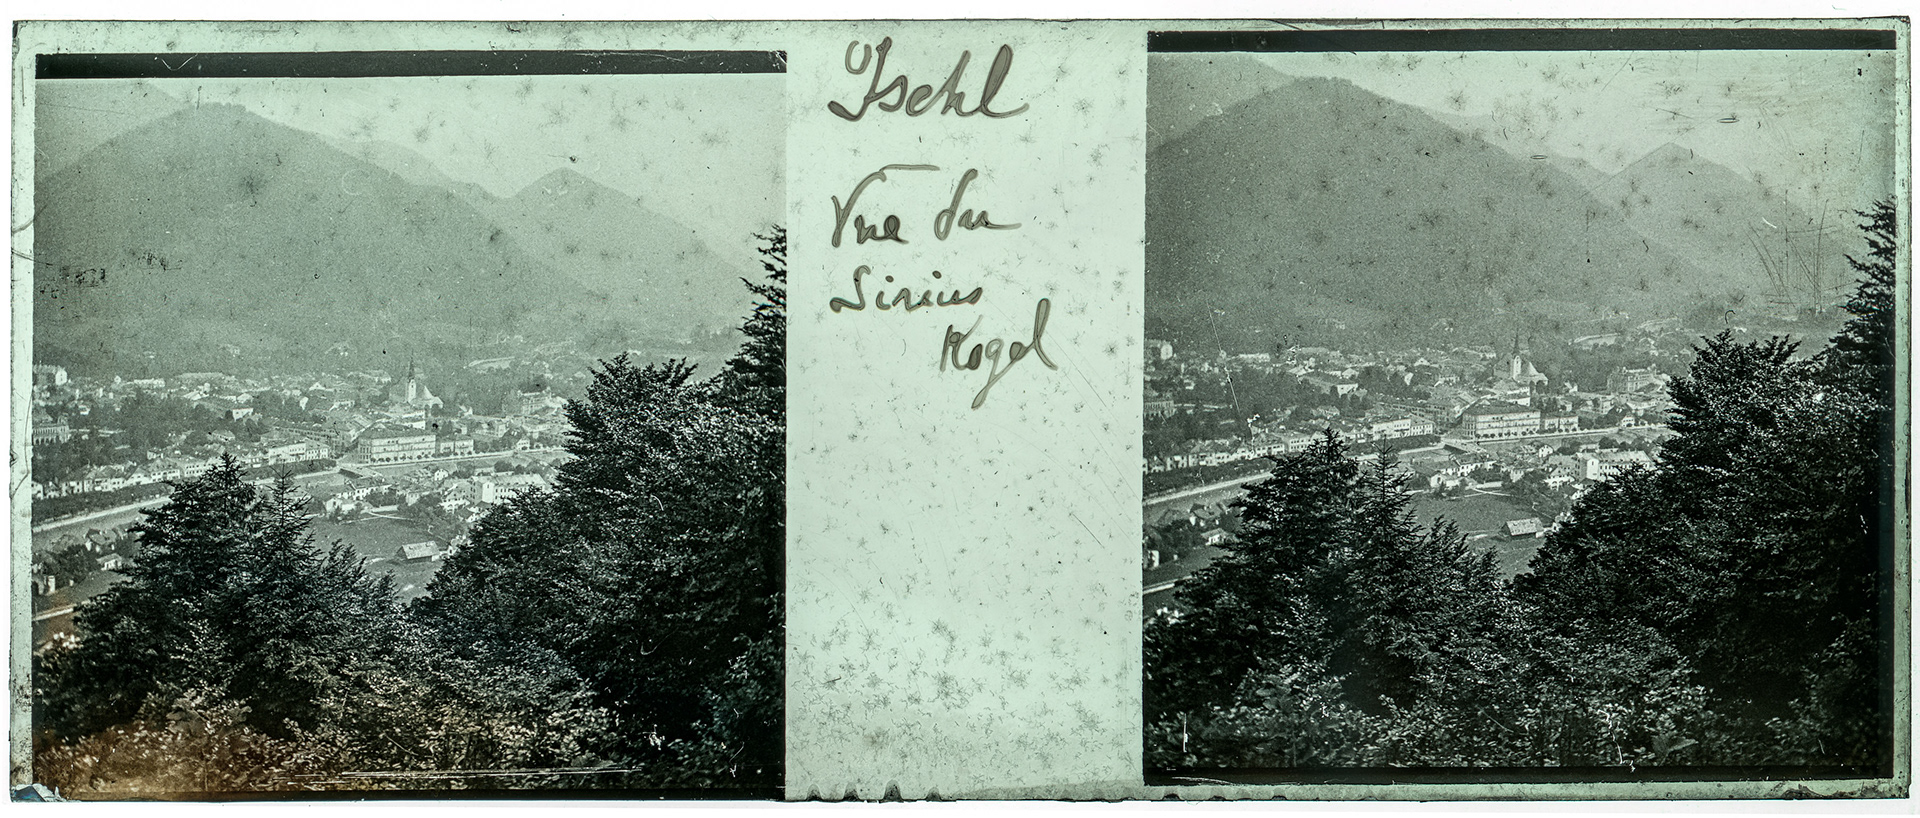 Ischl
Vue du
Sirius
Kogel